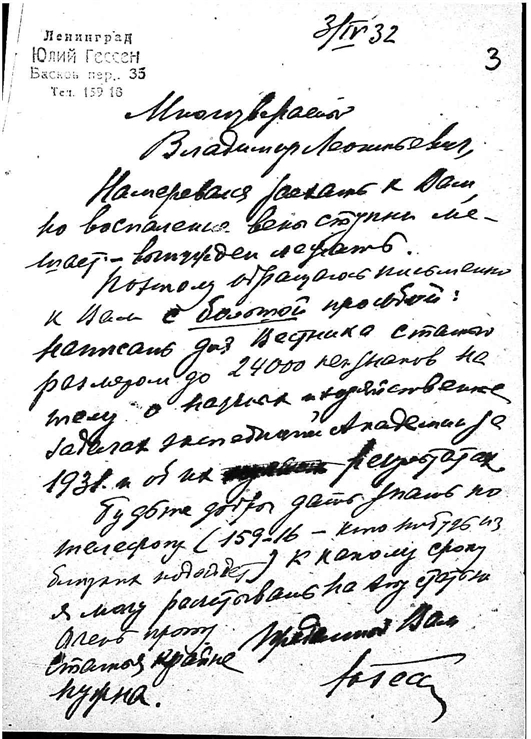 Ленинград
Юлий Гессен
Басков пер. 35
Тел. 159-16
3/IV 32
3
Многоуважаемый
Владимир Леонтьевич,
Намеревался заехать к Вам,
но воспаление вены ступни ме-
шает – вынужден лежать.
Поэтому обращаюсь письменно
к Вам с большой просьбой:
написать для Вестника статью
размером до 24000 печ. знаков на
тему о научн. и хозяйственных
задачах экспедиций Академии за
1931 г. и об их результатах
Будьте добры дать знать по
телефону (159-16 – кто нибудь из
близких подойдет) к какому сроку
я могу рассчитывать на эту статью
Очень прошу
статья крайне
нужна.
Преданный Вам
Ю Гессен